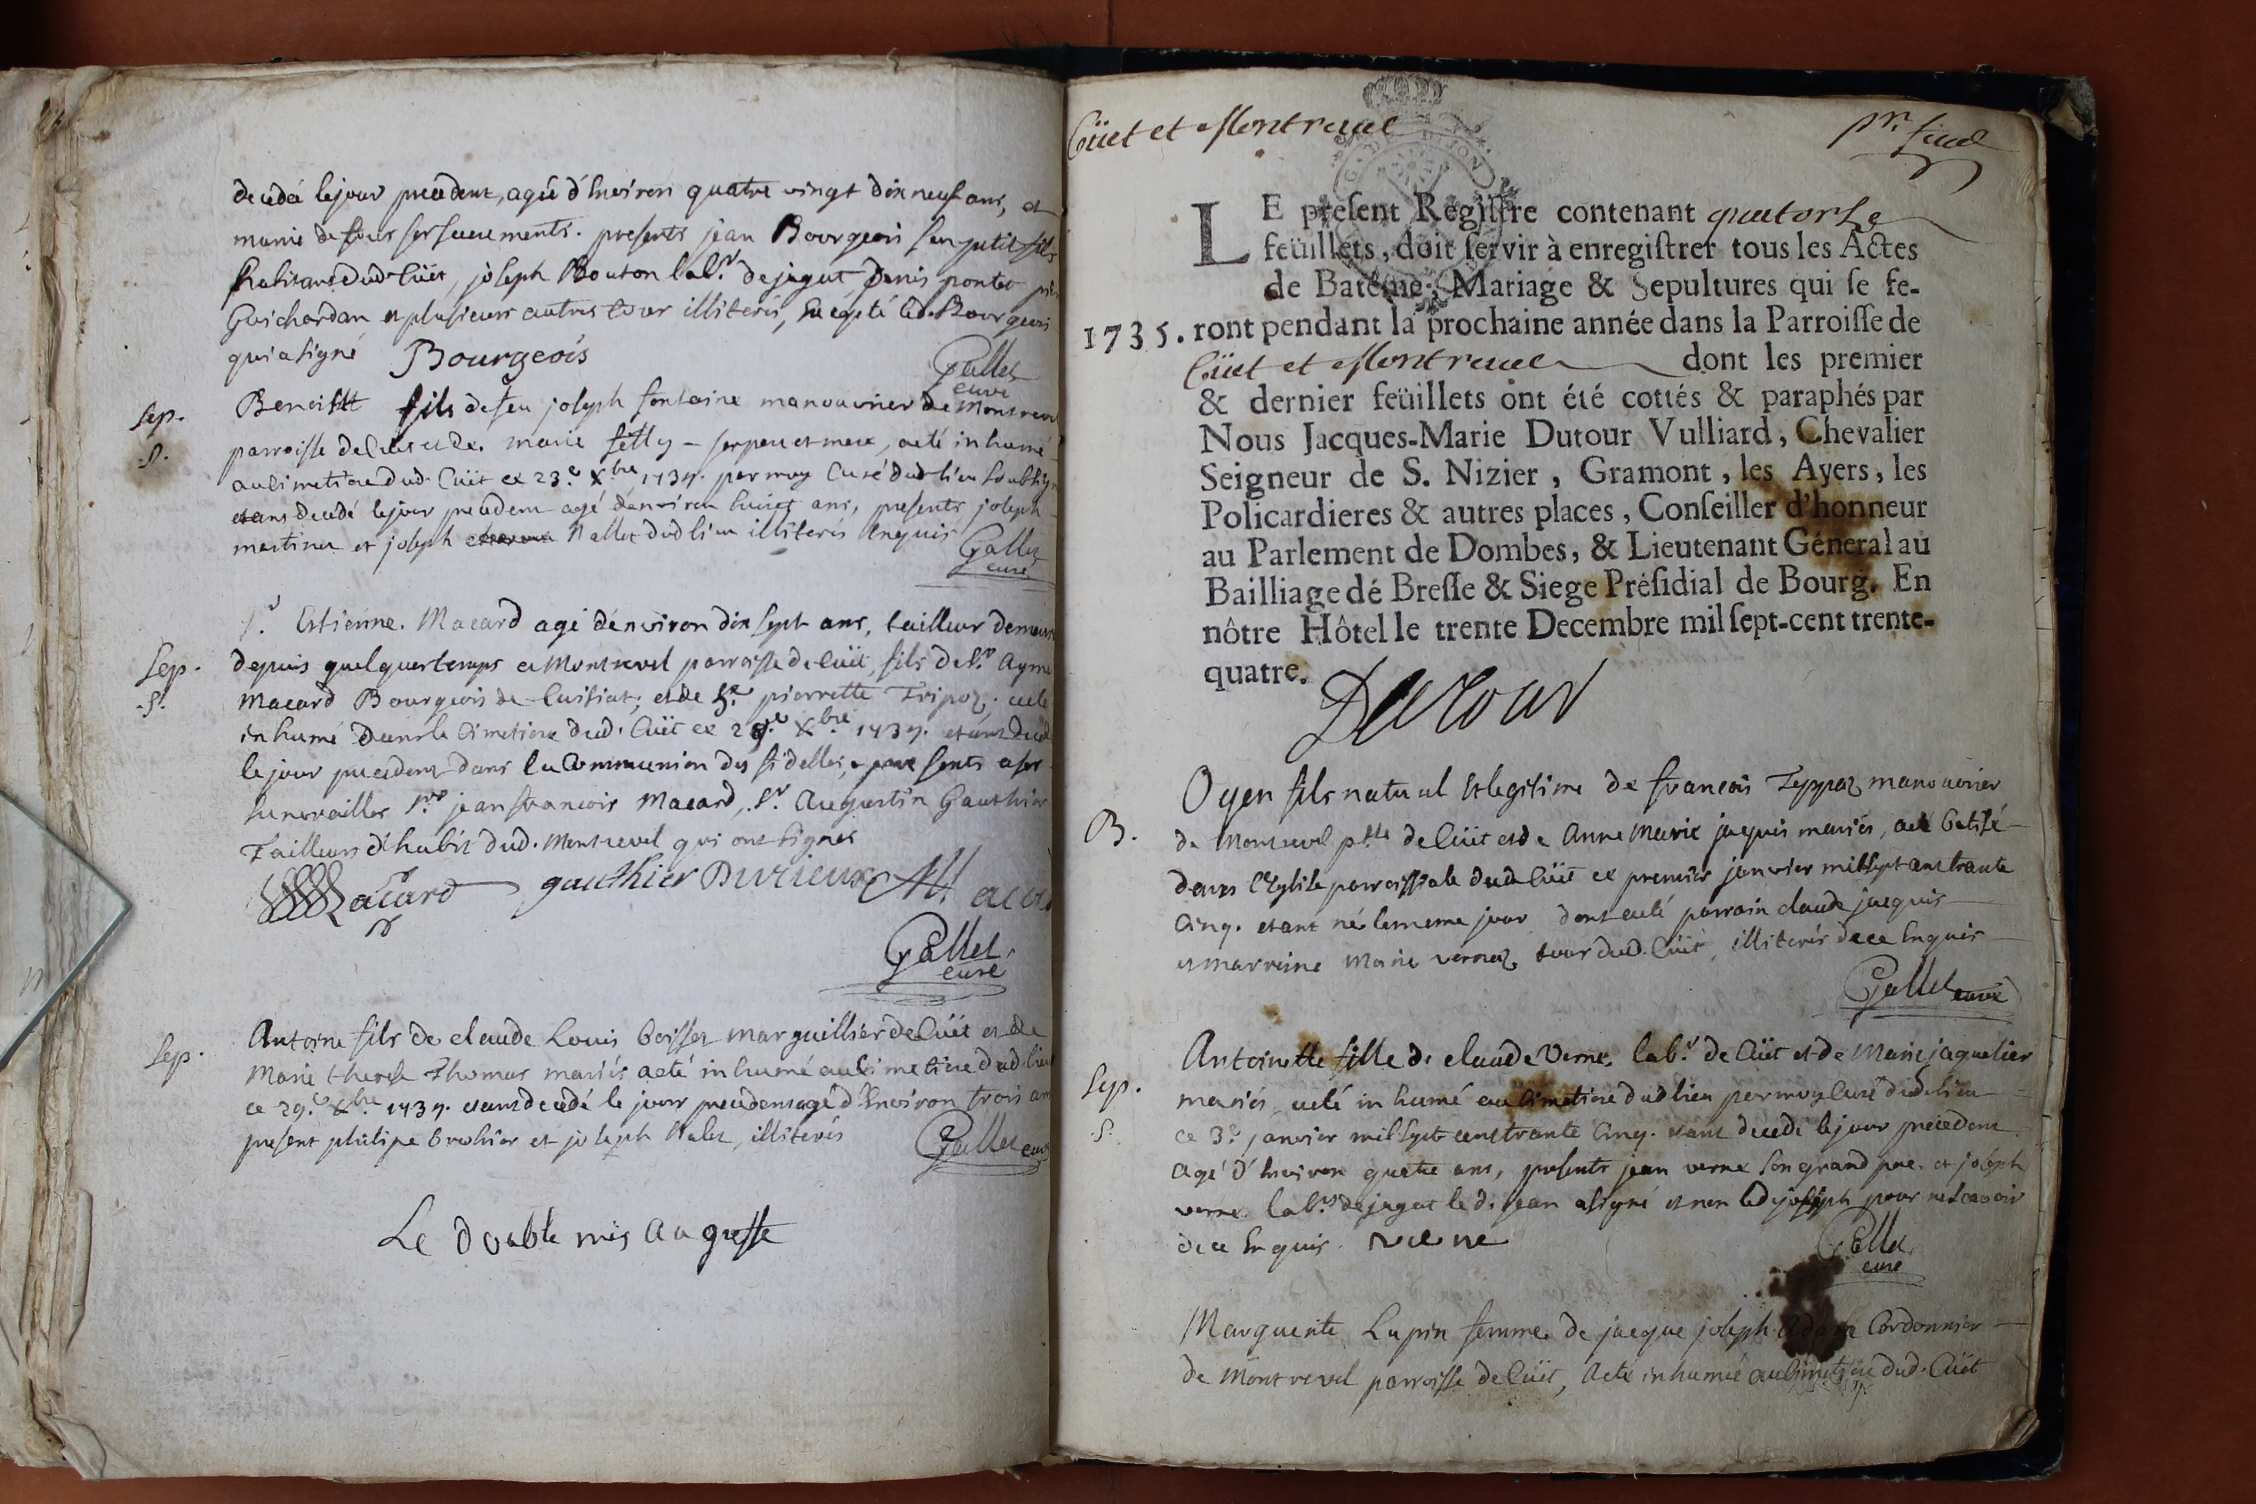 decedé le jour precedent, agé d'Environ quatre vingt dix neuf ans, et
munie de tous ses sacrements. presents jean Bourgeois son petit fils
habitant dud. Cüet, joseph Bouton lab.r de jagat denis
Guichardan et plusieurs autres tous illiterés, Excepté led. Bourgeois
qui a signé Bourgeois
Gallet
curé
Sep.
Benoist fils de feu joseph fontaine manouvrier de Montrevel
parroisse de Cüet et de marie - ses pere et mere, a eté inhumé
au cimetiere dud. Cüet ce 23.e Xbre 1734. par moy Curé dud. lieu soubsigné
etant decedé le jour precedent agé denviron huict ans, presents joseph
martinet et joseph Nallet dud lieu illiterés Enquis
Gallet
curé
S.r Estienne Macard agé denviron dix sept ans, tailleur demeurant
Sep.
depuis quelques temps a Montrevel parroisse de Cüet, fils de S.r Ayme
.S.
Macard Bourgeois de Cuisiat, et de pierrette Tripoz. a eté
inhumé dans le Cimetiere dud. Cüet ce Xbre 1734. etant decedé
le jour precedent dans la Communion des fidelles, presents a ses
funerailles jean francois Macard, S.r Augustin Gauthier
Tailleurs d'habit dud. Montrevel qui ont signes
Macard gauthier Durieux Macard
Gallet
curé
Sep.
Antoine fils de claude Louis boisset marguillier de Cüet et de
Marie therese Thomas mariés a eté inhumé au cimetiere dud. lieu
ce 29.e Xbre 1734. etant decedé le jour precedent agé d'Environ trois ans
present philipe brohier et joseph Nalet, illiterés
Gallet curé
Le double mis au greffe
Cüet et Montrevel
pr. feuil
LE preſent Regiſtre contenant quatorse
feüillets, doit ſervir à enregiſtrer tous les Actes
de Batême, Mariage & Sepultures qui ſe fe-
1735. ront pendant la prochaine année dans la Parroiſſe de
Cüet et Montrevel dont les premier
& dernier feüillets ont été cottés & paraphés par
Nous Jacques-Marie Dutour Vulliard, Chevalier
Seigneur de S. Nizier, Gramont, les Ayers, les
Policardieres & autres places, Conſeiller d'honneur
au Parlement de Dombes, & Lieutenant Géneral au
Bailliage dé Breſſe & Siege Préſidial de Bourg. En
nôtre Hôtel le trente Decembre mil ſept-cent trente-
quatre.
Dutour
Oyen fils naturel et legitime de francois Teppoz manouvrier
B.
de Montrevel p.sse de Cüet et de Anne Marie jaquis mariés, a eté batisé
dans l'Eglise parroissiale dud. Cüet ce premier janvier mil sept cent trante
Cinq. etant né le meme jour dont a eté parrain claude jaquis
et marraine Marie vernoz tous dud. Cüet, illiterés de ce Enquis
Gallet curé
Antoinette fille de claude Verne. lab.r de Cüet et de Marie jaquelier
Sep.
mariés a eté inhumé au cimetiere dud lieu par moy Curé dud. lieu
.S.
ce 3.e janvier mil sept cent trante Cinq. etant decedé le jour precedent
agé d'Environ quatre ans, presents jean verne son grand pere et joseph
verne lab.rs de jagat le d. jean a signé et non led. joseph pour ne scavoir
de ce Enquis. verne
Gallet
curé
Marguerite Lupin femme de jacque joseph Cordonnier
de Montrevel parroisse de Cüet, a eté inhumé au cimetiere dud. Cüet